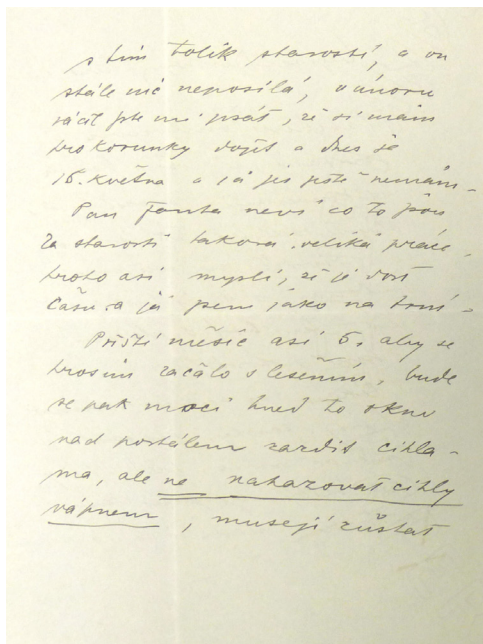 s tím tolik starostí, a on
stále nic neposílá, v únoru
ráčil jste mi psát, že si mám
pro korunky dojít a dnes je
15. května a já jich ještě nemám –
Pan Fanta neví co to jsou
za starosti taková veliká práce,
proto asi myslí, že je dost
času a já jsem jako na trní –
Příští měsíc asi 5. aby se
prosím začalo s lešením, bude
se pak moci hned to okno
nad portálem zazdít cihla-
ma, ale ne nahazovat cihly
vápnem, musejí zůstat